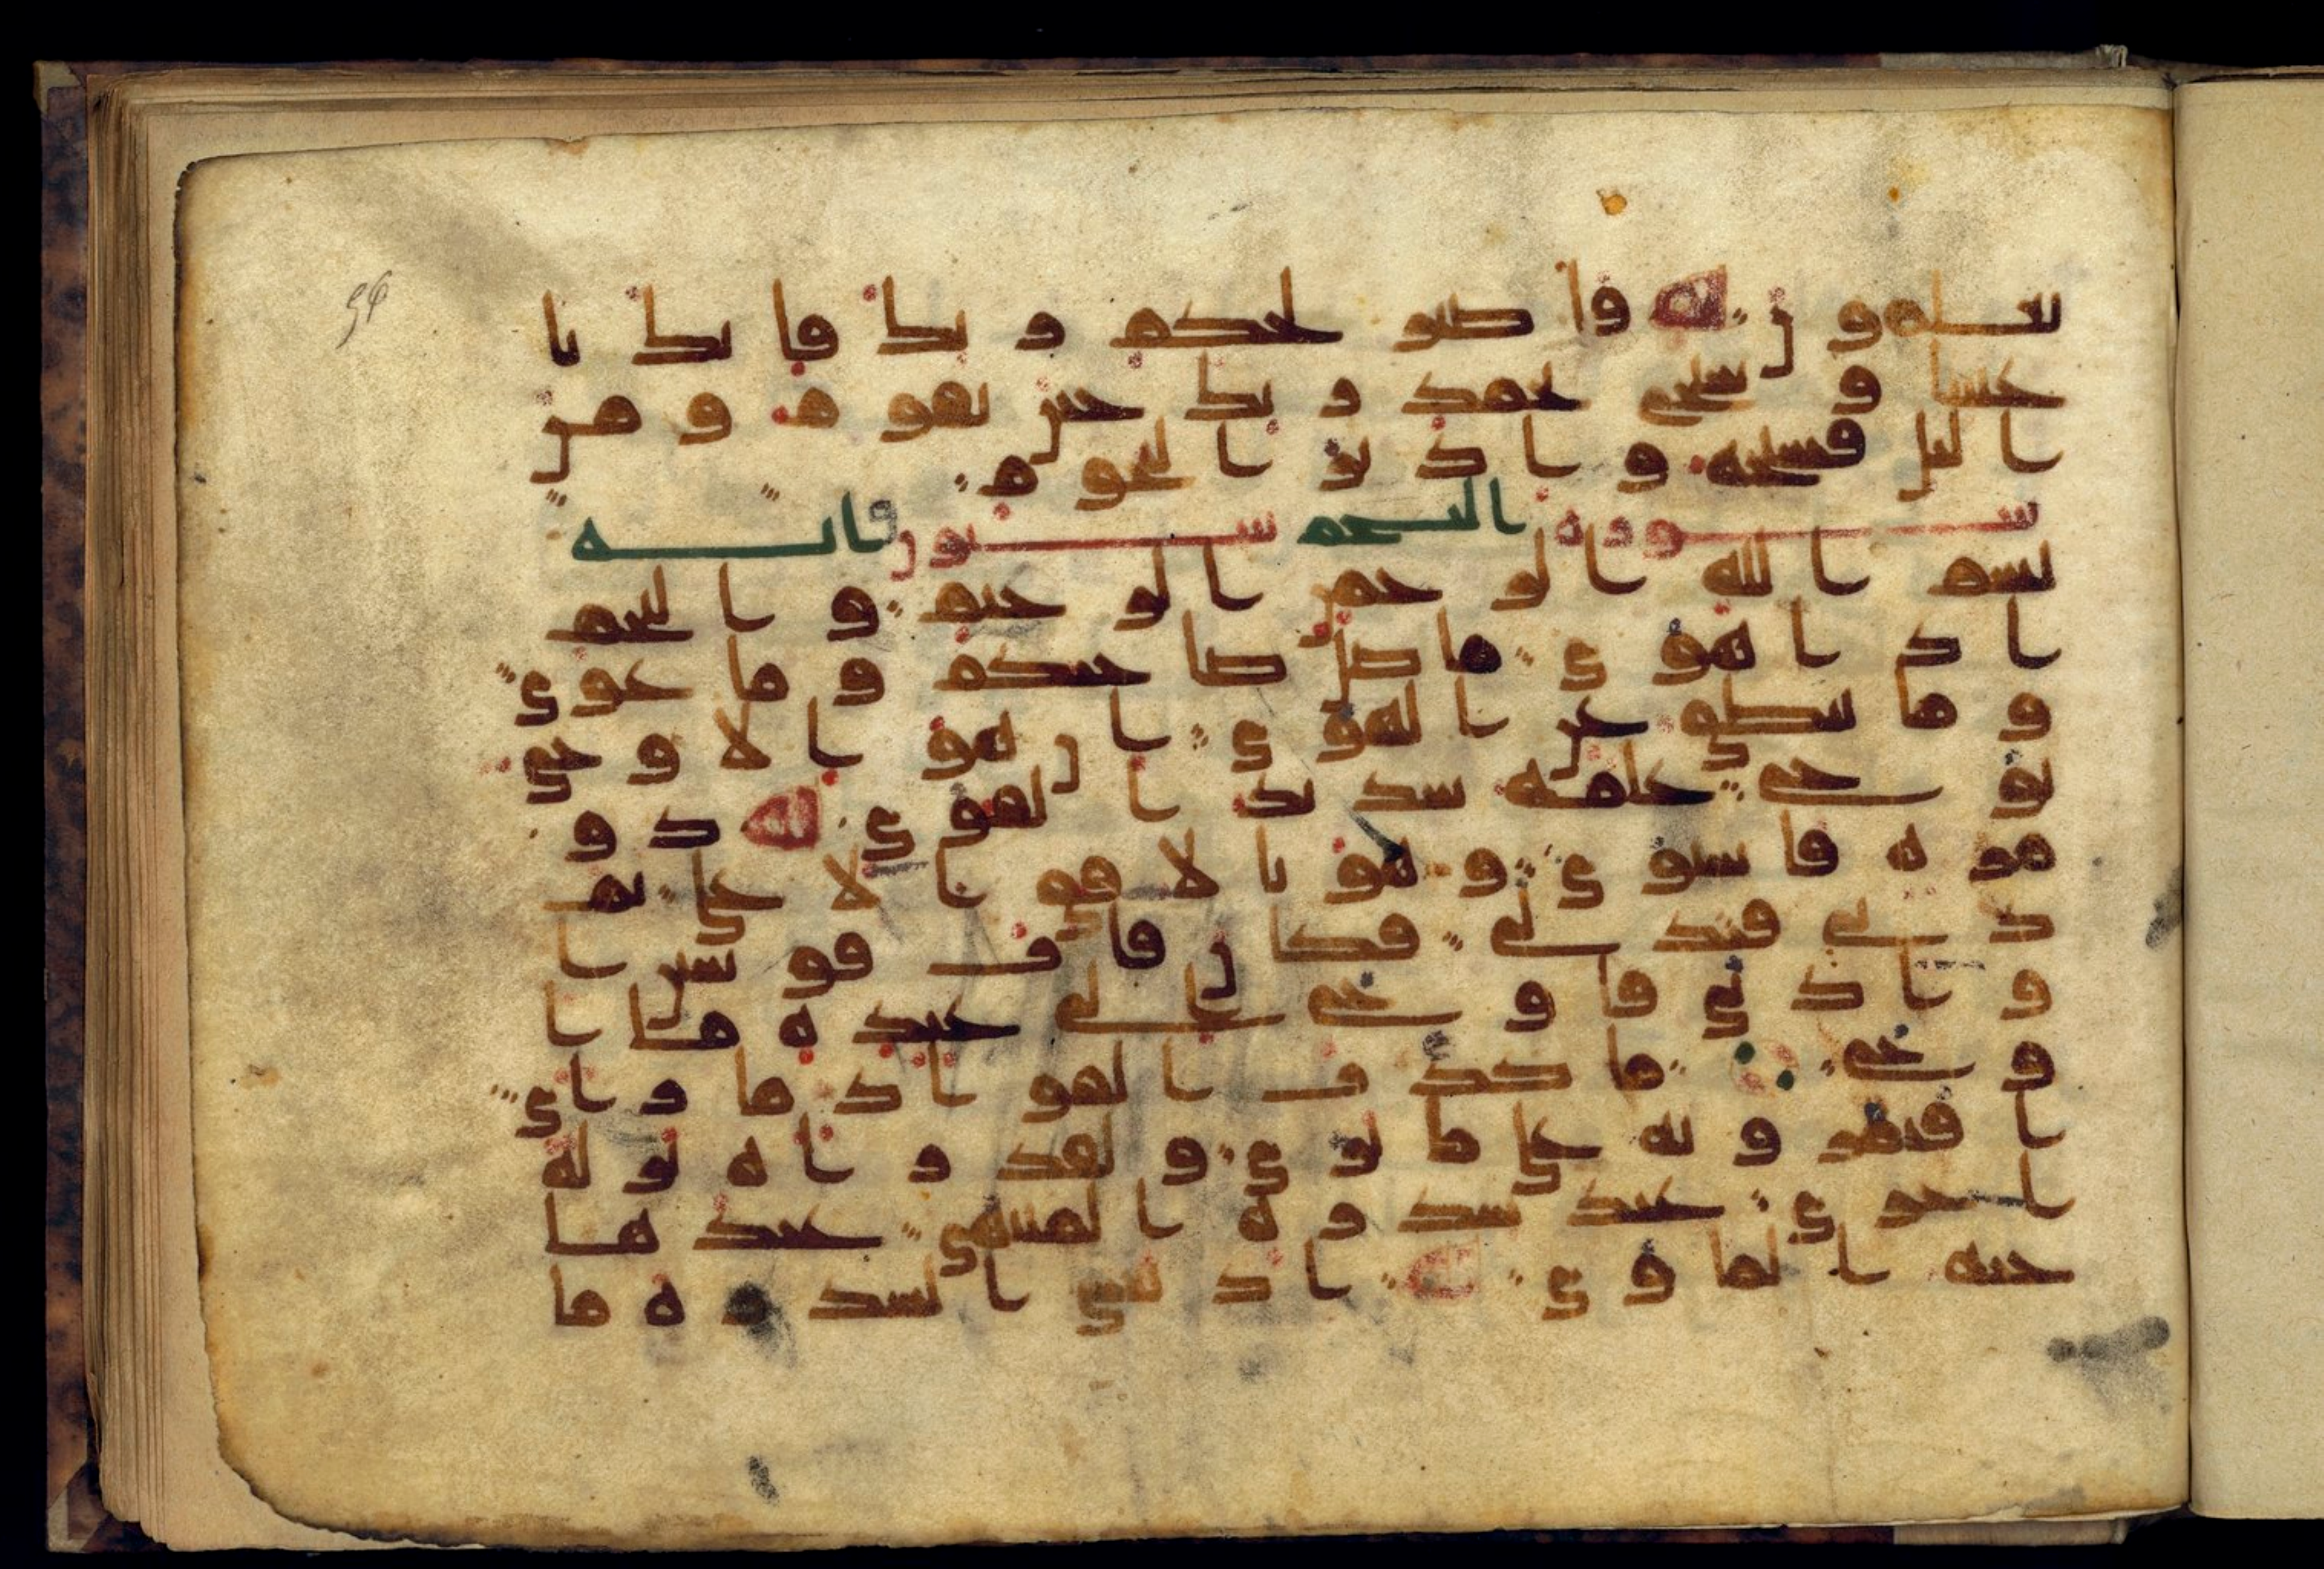 يعلمون واصبر لحكم ربك فانك با
عيننا وسبح بحمد ربك حين تقوم ومن
اليل فسبحه وادبر النجوم
سورة النجم ستون وايه
بسم الله الرحمن الرحيم والنجم
اذا هوى ما ضل صاحبكم وما غوى
وما ينطق عن الهوى ان هو الا وحي
يوحى علمه شديد القوى ذو
مرة فاستوى وهو بالافق الاعلى ثم
دنى فتدلى فكان قاب قوسين ا
و ادنى فاوحى الى عبده ما ا
وحى ما كذب الفواد ما راى
افتمرونه على ما يرى ولقد راه نزلة
اخرى عند سدرة المنتهى عندها
جنة الماوى اذ يغشى السدرة ما